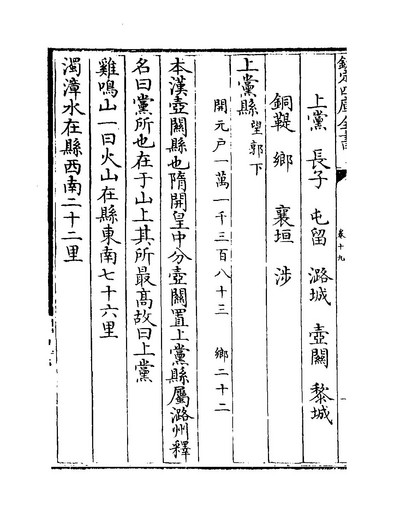 欽定四庫全書
卷十九
上黨 長子 屯留 潞城 壺關 黎城
銅鞮 鄉 襄垣 涉
上黨縣望郭下
開元户一萬一千三百八十三 鄉二十二
本漢壺關縣也隋開皇中分壺關置上黨縣屬潞州釋
名曰黨所也在于山上其所最髙故曰上黨
雞鳴山一曰火山在縣東南七十六里
濁漳水在縣西南二十二里